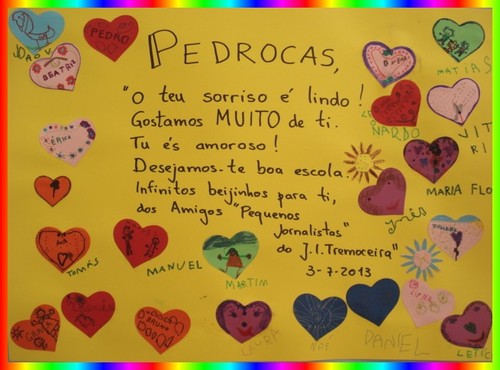 PEDROCAS,
"O teu sorriso é lindo!
Gostamos MUITO de ti.
Tu és amoroso!
Desejamos-te boa escola.
Infinitos beijinhos para ti,
dos Amigos "Pequenos
Jornalistas"
do J.I.Tremoceira"
3-7-2013
JOÃO V
PEDRO
BEATRIZ
MATIAS
LEO
NARDO
VIT
RI
ÉRICA
MARIA FLO
Inês
TOMÁS
MANUEL
MARTIM
BRUNA
LAURA
DANIEL
LETIC